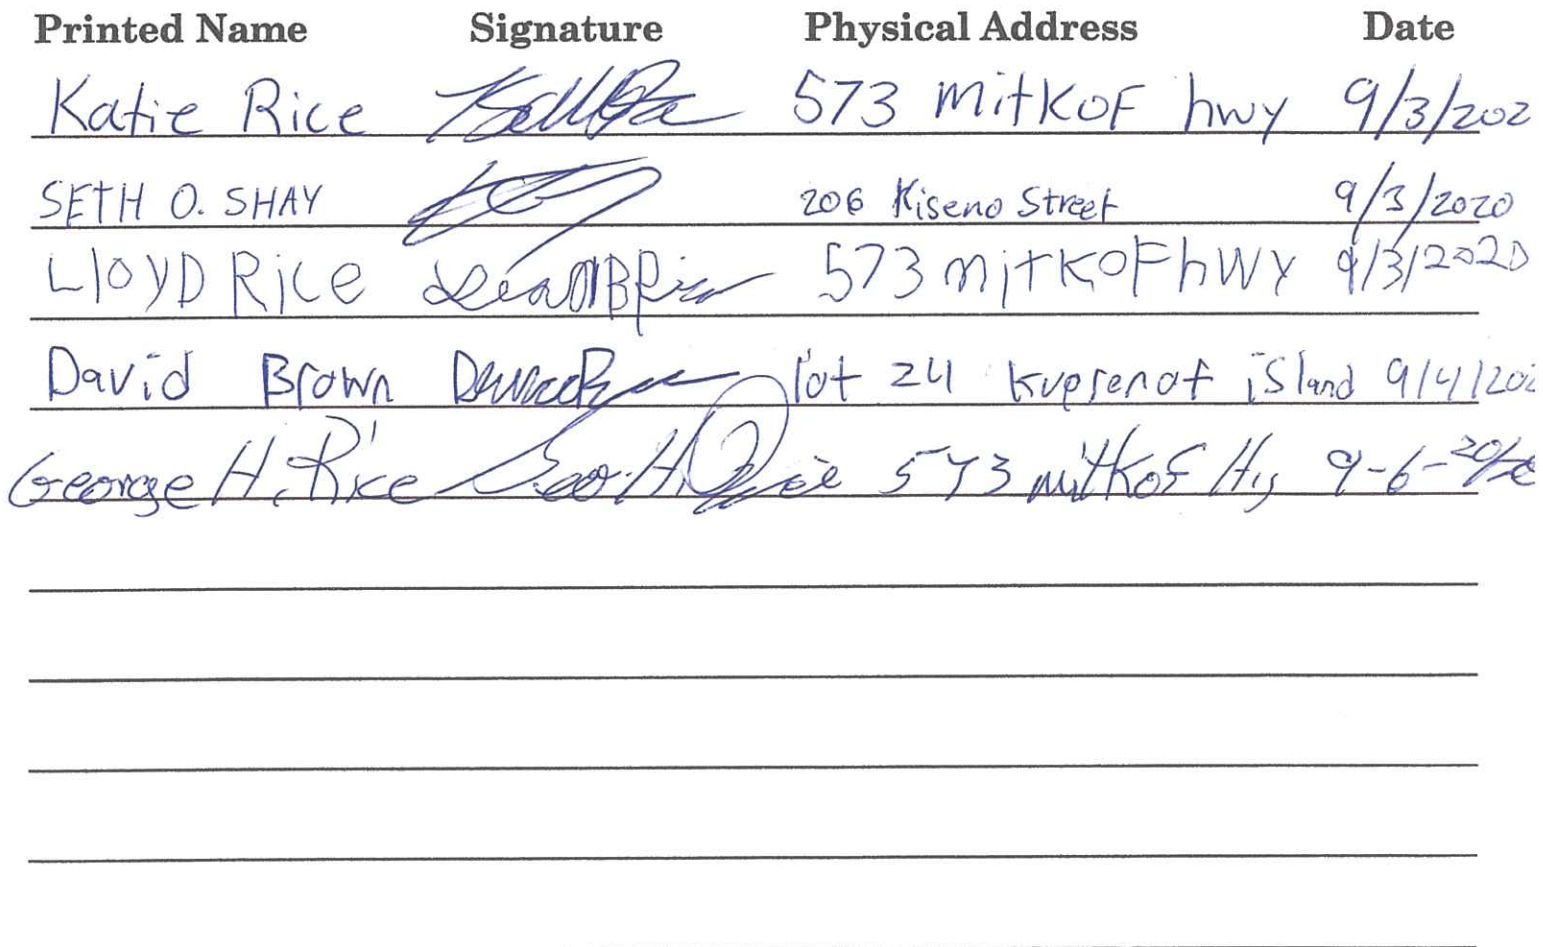 Printed Name Signature Physical Address Date
Katie Rice 573 mitkof hwy 9/3/202
SETH O. SHAY 206 Kiseno Street 9/3/2020
LloyD Rice 573 mitkoF hwy 9/3/2020
David Brown lot 24 kuprenof island 9/4/202
George H. Rice Geo. H. Rice 573 mitkof Hy 9-6-